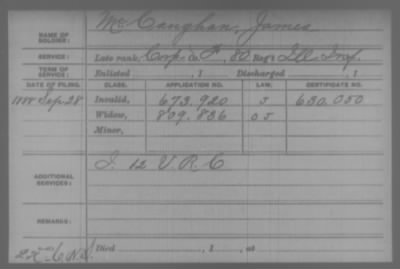 NAME OF SOLDIER: McCaughan, James
SERVICE: Late rank, Corp. Co. F, 80 Reg't Ill. Inf.
TERM OF SERVICE: Enlisted , 1 Discharged , 1
DATE OF FILING. CLASS. APPLICATION NO. LAW. CERTIFICATE NO.
Sep. 28 Invalid, 673.920 J 630.050
Widow, 809.836 OJ
Minor,
ADDITIONAL SERVICES: I. 12 V.R.C
REMARKS:
Died , 1 , at